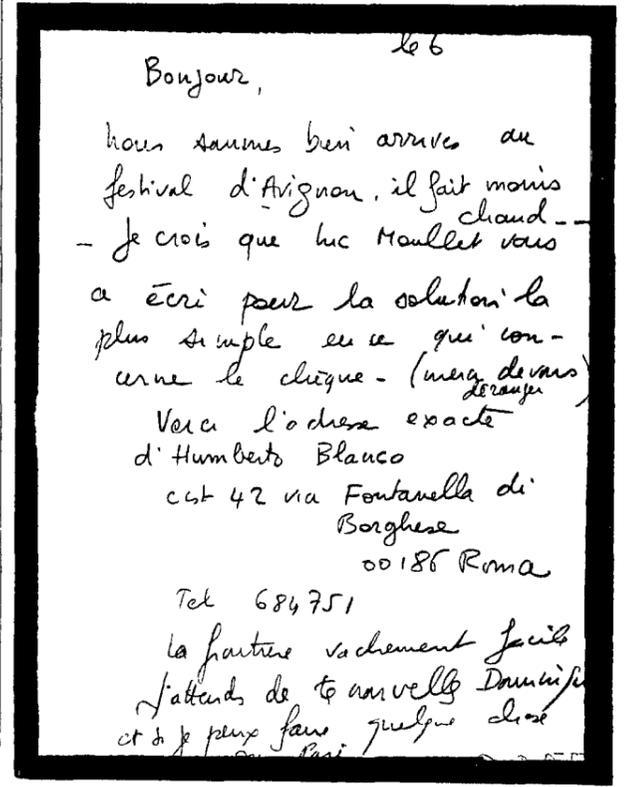 le 6
Bonjour,
nous sommes bien arrives au
festival d'Avignon, il fait moins
chaud --
- Je crois que Luc Moullet vous
a écri pour la solution la
plus simple en ce qui con-
cerne le chèque - (merci de vous
déranger)
Voici l'adresse exacte
d'Humberto Blanco
est 42 via Fontanella di
Borghese
00186 Roma
Tel 684751
La frontiere vachement facile
J'attends de te nouvelle
et si je peux faire quelque chose